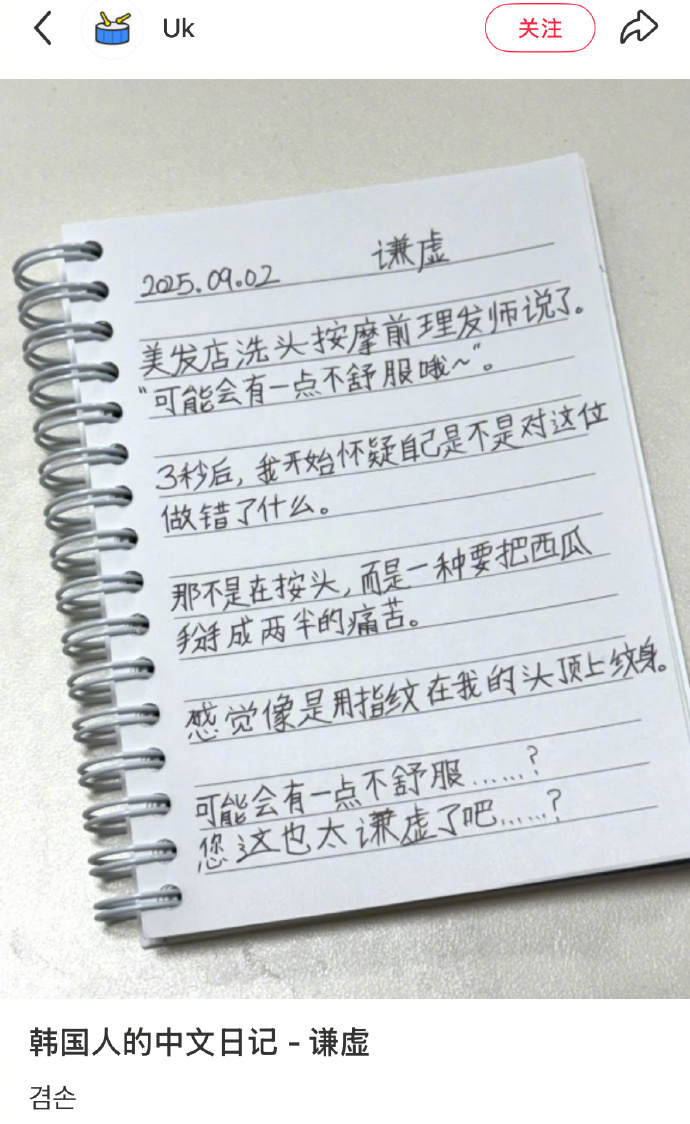 Uk
关注
2025.09.02 谦虚
美发店洗头按摩前理发师说了。
"可能会有一点不舒服哦~"。
3秒后，我开始怀疑自己是不是对这位
做错了什么。
那不是在按头，而是一种要把西瓜
掰成两半的痛苦。
感觉像是用指纹在我的头顶上纹身。
可能会有一点不舒服……?
您这也太谦虚了吧……?
韩国人的中文日记 - 谦虚
겸손